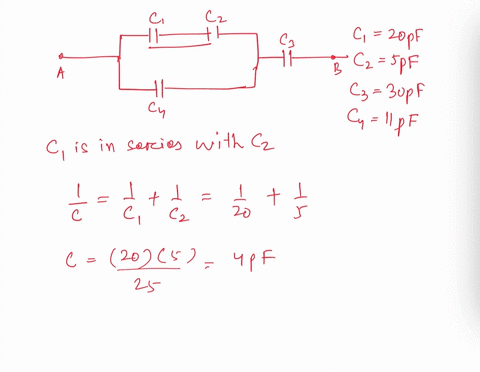 C₁ C₂
C₃
A
B
C₄
C₁ = 20pF
C₂ = 5pF
C₃ = 30pF
C₄ = 11pF
C₁ is in sercies with C₂
1/C = 1/C₁ + 1/C₂ = 1/20 + 1/5
C = (20)(5)/25 = 4pF